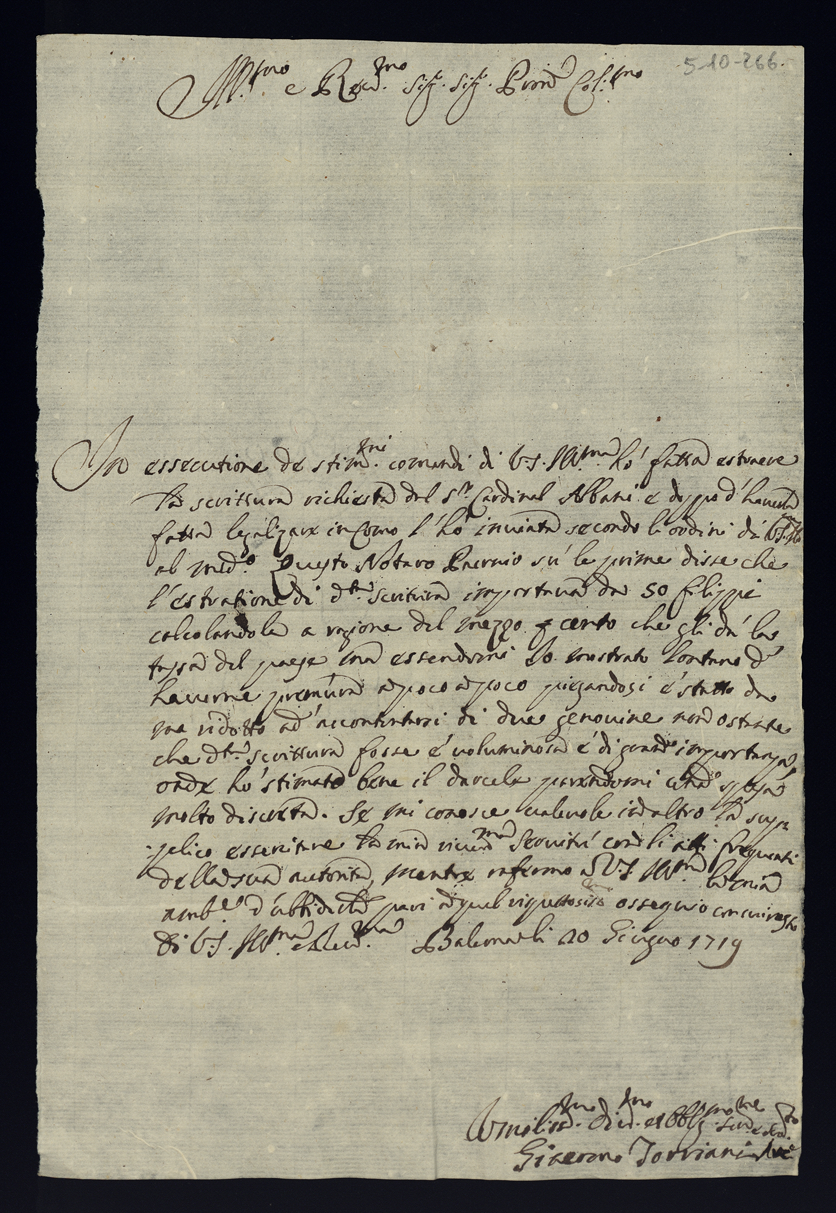 5-10-266.
Ill.mo e Rev.mo Sig.r Sig.r Pron Col.mo
In essecutione de stim.mi comandi di V.S. Ill.ma hò fatta estraere
la scrittura richiesta dal S.r Cardinal Albani e doppo d'haverla
fatta legalizare in Como l'hò inviata secondo li ordini di V.S. Ill.ma
al med.o Questo Notaro Paernio sù le prime disse che
l'estratione di d.ta scrittura importava da 50 filippi
calcolandola a ragione del mezzo p cento che gli dà la
tassa del paese ma essendomi Io mostrato lontano d'
haverne premura àpoco àpoco piegandosi è stato da
me ridotto ad' accontentarsi di due genovine non ostante
che d.ta scrittura fosse è voluminosa è di grand' importanza
onde hò stimato bene il darcele parendomi spesa
molto discreta. Se mi conosce valevole in altro la sup
plico essercitare la mia servitù con li atti frequenti
della sua autorità, mentre rafermo à V.S. Ill.ma la mia
d'ubbidirla pari à quel ossequio con cui
Di V.S. Ill.ma e Rev.ma Balerna li 20 Giugno 1719
Umiliss.mo et Obblig.mo
Torriani